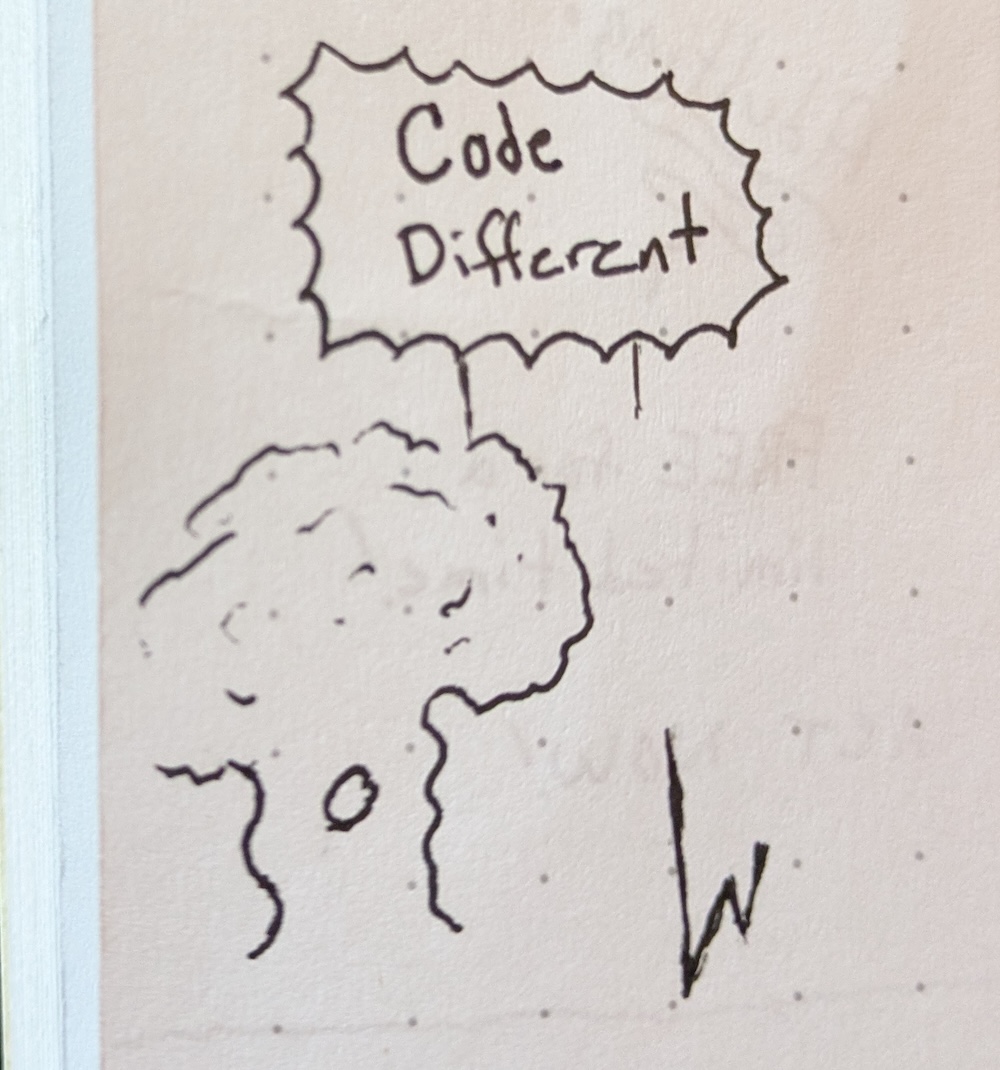 Code
Different